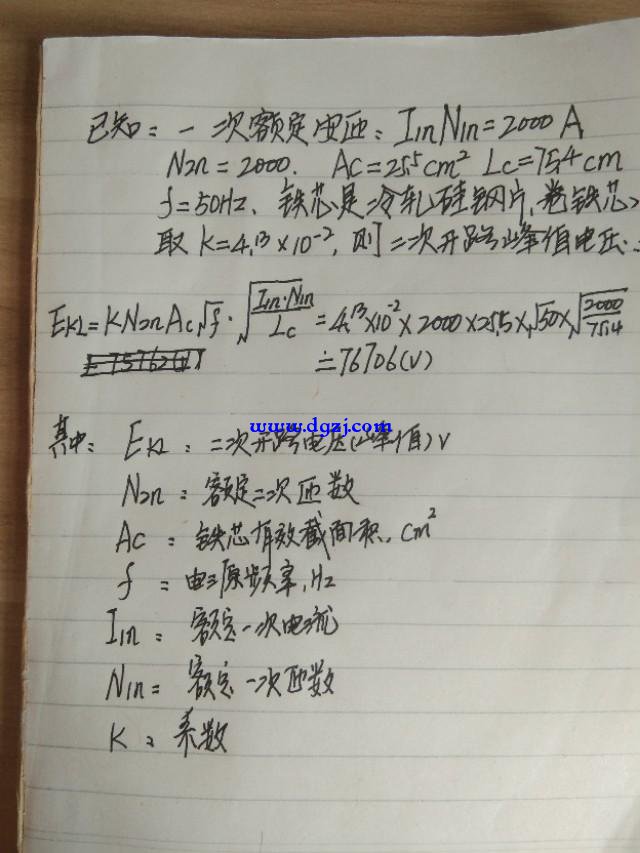 已知：一次额定安匝：I1nN1n=2000A
N2n=2000. Ac=25.5cm² Lc=75.4cm
f=50Hz、铁芯是冷轧硅钢片,卷铁芯
取K=4.13×10⁻², 则二次开路峰值电压:
Ek2=KN2nAc√f·√(I1n·N1n/Lc)=4.13×10⁻²×2000×25.5×√50×√(2000/75.4)
≐76706(V)
www.dgzj.com
其中: Ek2：二次开路电压(峰值)V
N2n：额定二次匝数
Ac：铁芯有效截面积, cm²
f=电源频率,Hz
I1n：额定一次电流
N1n=额定一次匝数
K：系数